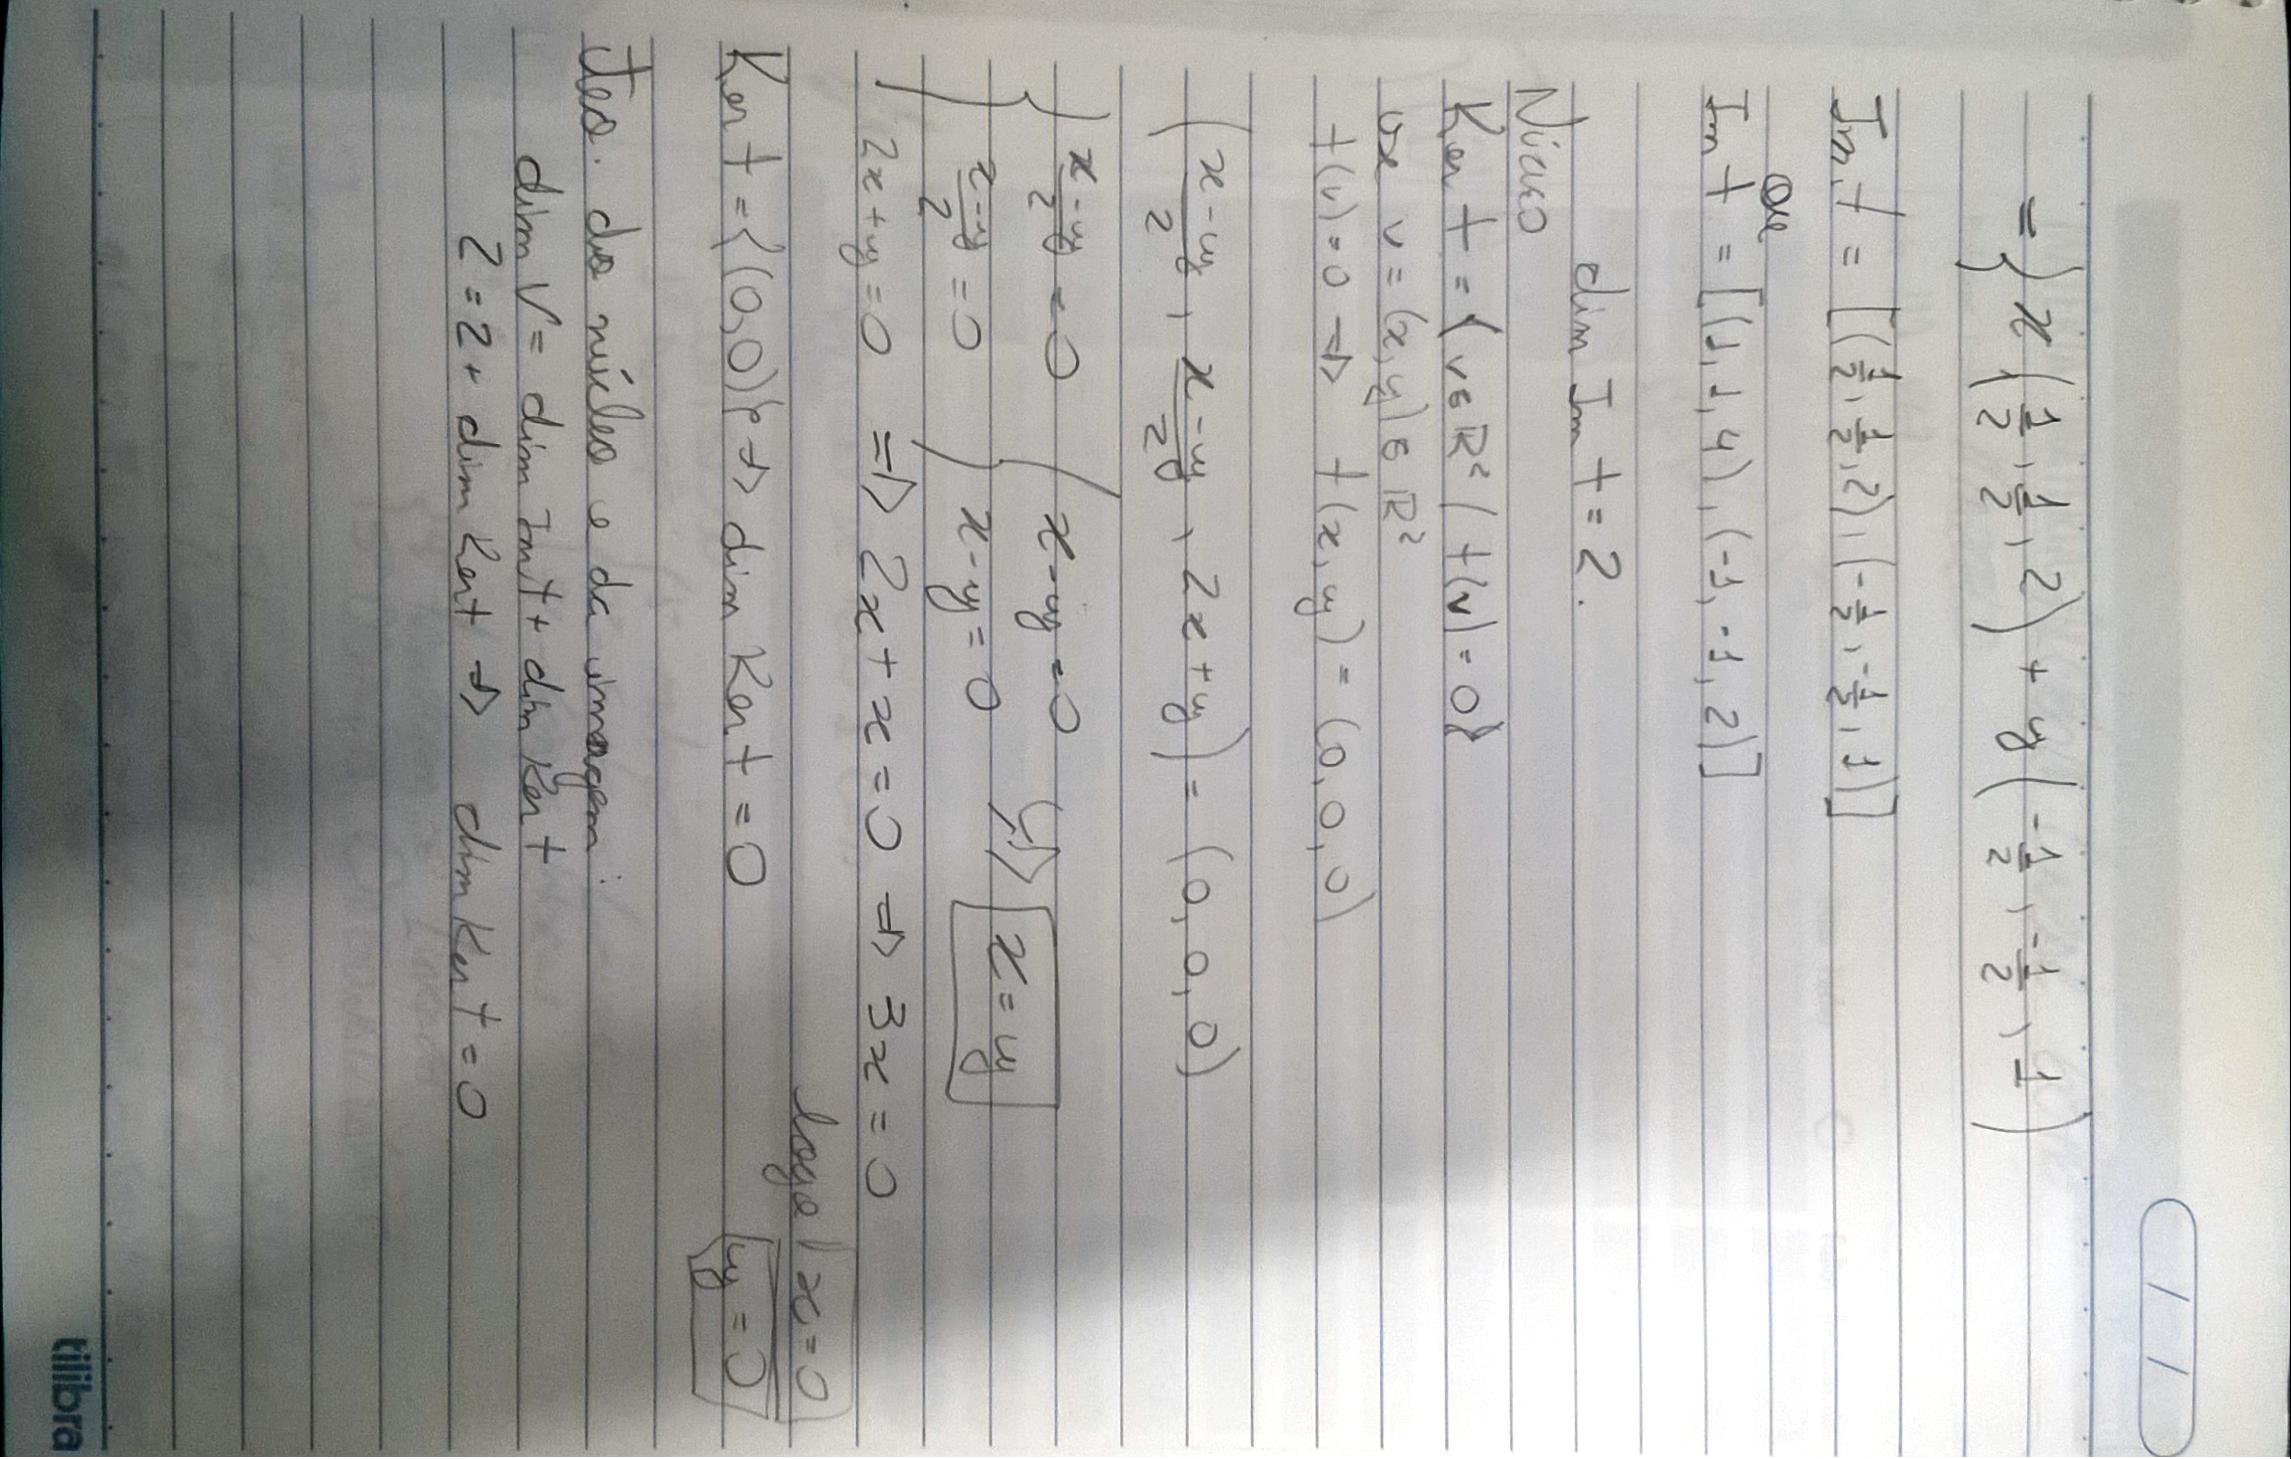 / /
= } x (1/2, 1/2, 2) + y (-1/2, -1/2, 1)
Im t = [(1/2, 1/2, 2), (-1/2, -1/2, 1)]
ou
Im t = [(1, 1, 4), (-1, -1, 2)]
dim Im t = 2.
Núcleo
Ker t = { v ∈ ℝ² / t(v) = 0}
v = (x, y) ∈ ℝ²
t(v) = 0 ⇒ t(x, y) = (0, 0, 0)
(x-y/2, x-y/2, 2x+y) = (0, 0, 0)
{ x-y/2 = 0 { x-y = 0 ⇒ x = y
x-y/2 = 0 x-y = 0
2x+y = 0 ⇒ 2x + x = 0 ⇒ 3x = 0
logo x = 0
Ker t = {(0,0)} ⇒ dim Ker t = 0 y = 0
Teo. do núcleo e da imagem:
dim V = dim Im t + dim Ker t
2 = 2 + dim Ker t ⇒ dim Ker t = 0
tilibra